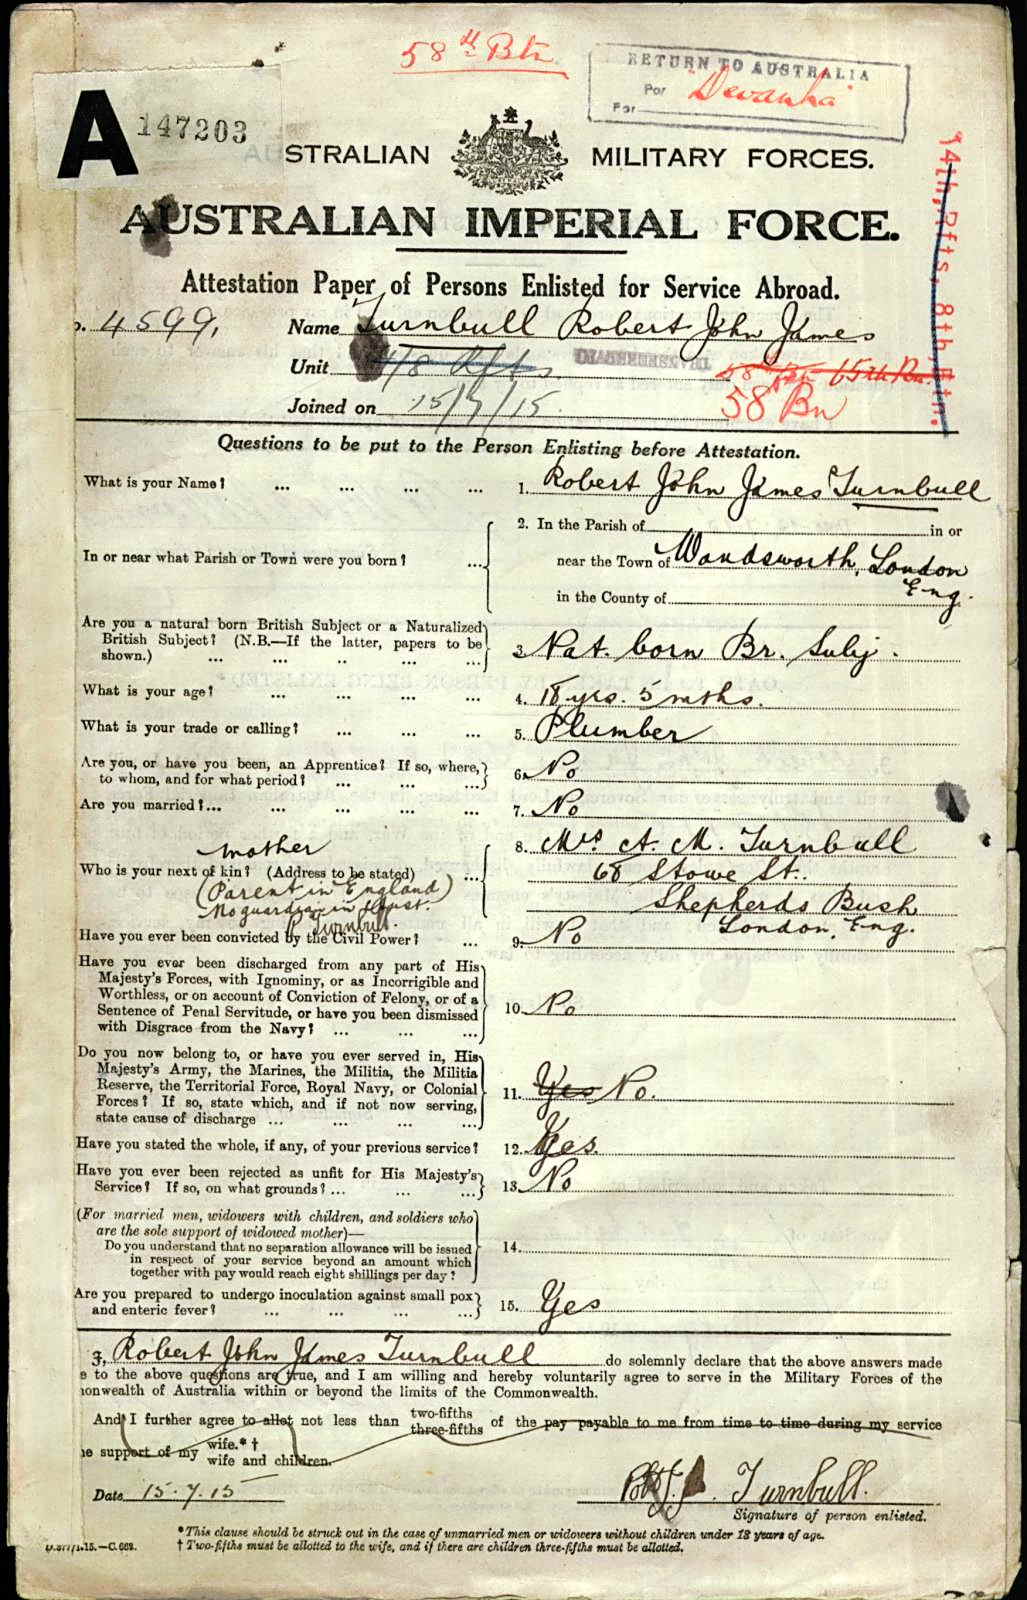 58th Btn
RETURN TO AUSTRALIA
Per "Devanha"
For
A 147203
AUSTRALIAN MILITARY FORCES.
AUSTRALIAN IMPERIAL FORCE.
14th, Rfts, 8th, Btn.
Attestation Paper of Persons Enlisted for Service Abroad.
4599. Name Turnbull Robert John James
Unit 14/8 Rfts 58 Btn 65th Bn.
Joined on 15/7/15 58 Bn
Questions to be put to the Person Enlisting before Attestation.
What is your Name? ... ... ... ... 1. Robert John James Turnbull
2. In the Parish of in or
In or near what Parish or Town were you born? ... near the Town of Wandsworth, London
Eng.
in the County of
Are you a natural born British Subject or a Naturalized
British Subject? (N.B.—If the latter, papers to be
shown.) ... ... .. ... ... 3. Nat. born Br. Subj.
What is your age? ... ... ... ... 4. 18 yrs. 5 mths.
What is your trade or calling? ... ... ... 5. Plumber
Are you, or have you been, an Apprentice? If so, where,
to whom, and for what period? ... ... ... 6. No
Are you married?... ... ... ... ... 7. No
mother
Who is your next of kin? (Address to be stated) ... 8. Mrs A. M. Turnbull
68 Stowe St.
(Parent in England) Shepherds Bush
No guardian in Aust. London, Eng.
Turnbull
Have you ever been convicted by the Civil Power? ... 9. No
Have you ever been discharged from any part of His
Majesty's Forces, with Ignominy, or as Incorrigible and
Worthless, or on account of Conviction of Felony, or of a
Sentence of Penal Servitude, or have you been dismissed
with Disgrace from the Navy? ... ... ... 10. No
Do you now belong to, or have you ever served in, His
Majesty's Army, the Marines, the Militia, the Militia
Reserve, the Territorial Force, Royal Navy, or Colonial
Forces? If so, state which, and if not now serving,
state cause of discharge ... ... ... ... 11. Yes No.
Have you stated the whole, if any, of your previous service? 12. Yes.
Have you ever been rejected as unfit for His Majesty's
Service? If so, on what grounds? ... ... ... 13. No
(For married men, widowers with children, and soldiers who
are the sole support of widowed mother)—
Do you understand that no separation allowance will be issued
in respect of your service beyond an amount which
together with pay would reach eight shillings per day? 14.
Are you prepared to undergo inoculation against small pox
and enteric fever? ... ... ... ... 15. Yes
I, Robert John James Turnbull do solemnly declare that the above answers made
e to the above questions are true, and I am willing and hereby voluntarily agree to serve in the Military Forces of the
monwealth of Australia within or beyond the limits of the Commonwealth.
And I further agree to allot not less than two-fifths three-fifths of the pay payable to me from time to time during my service
he support of my wife.*† wife and children.
Date 15.7.15 Robt J. J. Turnbull.
Signature of person enlisted.
*This clause should be struck out in the case of unmarried men or widowers without children under 18 years of age.
† Two-fifths must be allotted to the wife, and if there are children three-fifths must be allotted.